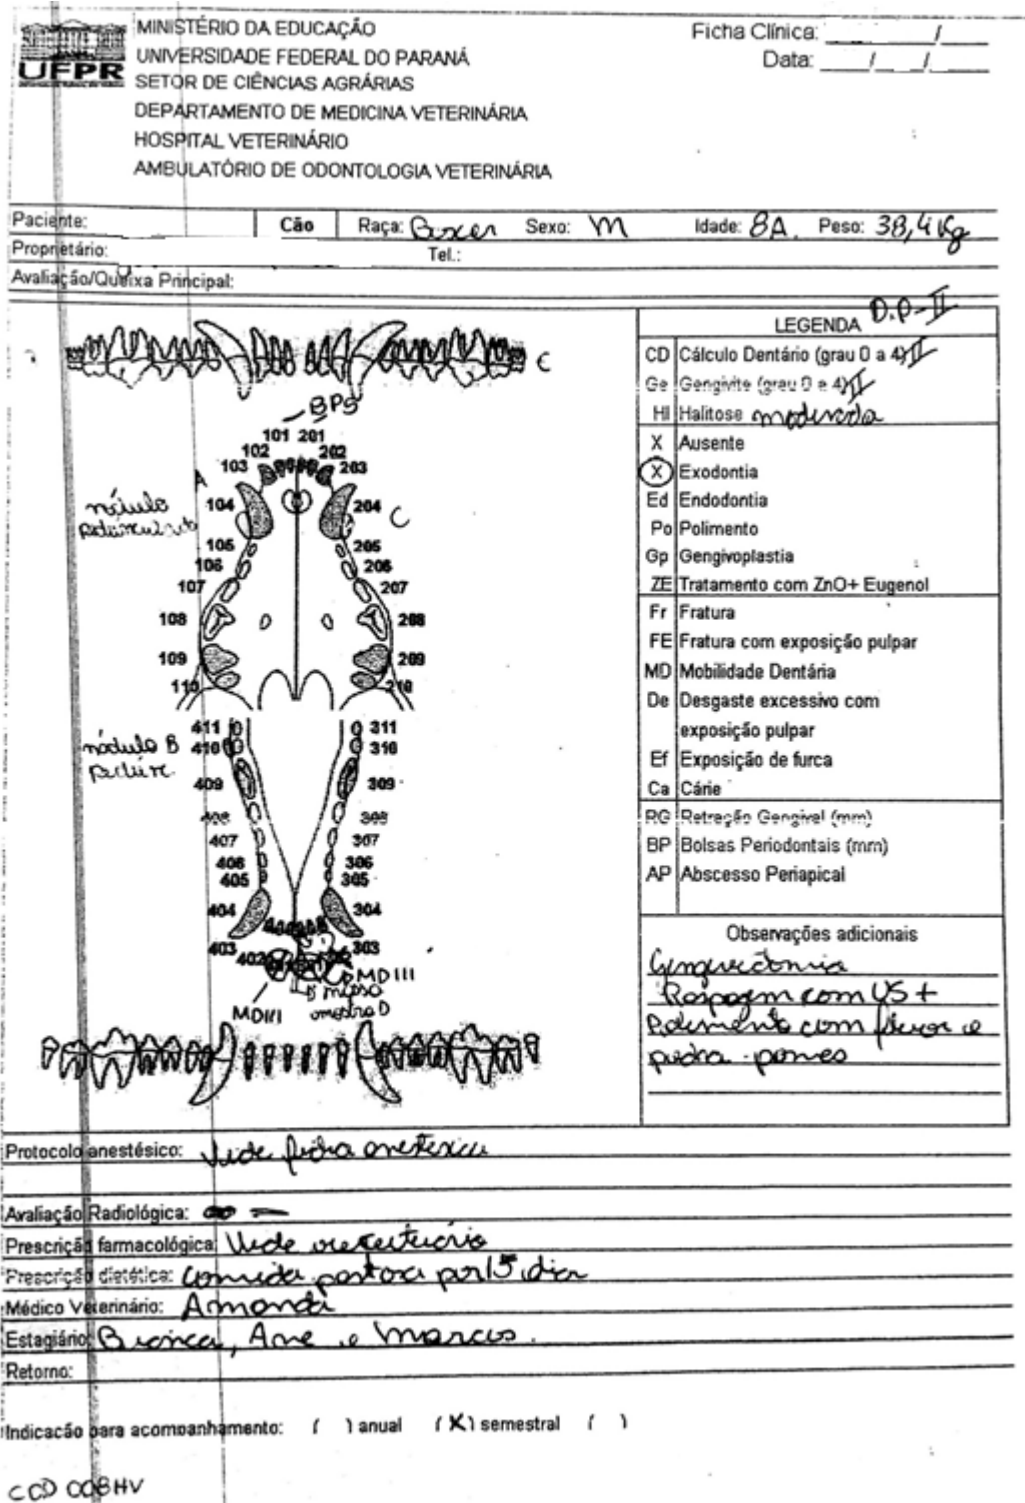 MINISTÉRIO DA EDUCAÇÃO
UFPR
UNIVERSIDADE FEDERAL DO PARANÁ
SETOR DE CIÊNCIAS AGRÁRIAS
DEPARTAMENTO DE MEDICINA VETERINÁRIA
HOSPITAL VETERINÁRIO
AMBULATÓRIO DE ODONTOLOGIA VETERINÁRIA
Ficha Clínica: /
Data: / /
Paciente: Cão Raça: Boxer Sexo: M Idade: 8A. Peso: 38,4 Kg
Proprietário: Tel.:
Avaliação/Queixa Principal:
C
BP5
101 201
102 202
103 203
A
104 204
nódulo
C
105 205
106 206
107 207
108 208
109 209
110 210
411 311
nódulo B 410 310
409 309
408 308
407 307
406 306
405 305
404 304
403 303
402
MDIII
MDIII
D
LEGENDA D.P-II
CD Cálculo Dentário (grau 0 a 4) II
Ge Gengivite (grau 0 a 4) II
HI Halitose moderada
X Ausente
X Exodontia
Ed Endodontia
Po Polimento
Gp Gengivoplastia
ZE Tratamento com ZnO+ Eugenol
Fr Fratura
FE Fratura com exposição pulpar
MD Mobilidade Dentária
De Desgaste excessivo com
exposição pulpar
Ef Exposição de furca
Ca Cárie
RG Retração Gengival (mm)
BP Bolsas Periodontais (mm)
AP Abscesso Periapical
Observações adicionais
Gengivectomia
Raspagem com US +
Polimento com fluor e
pedra-pomes
Protocolo anestésico: Vide ficha anestesica
Avaliação Radiológica:
Prescrição farmacológica: Vide receituário
Prescrição dietética: Comida pastosa por 15 dias
Médico Veterinário: Amanda
Estagiário: Bianca, Ane e Marcos.
Retorno:
Indicacão para acompanhamento: ( ) anual (X) semestral ( )
COD 008HV